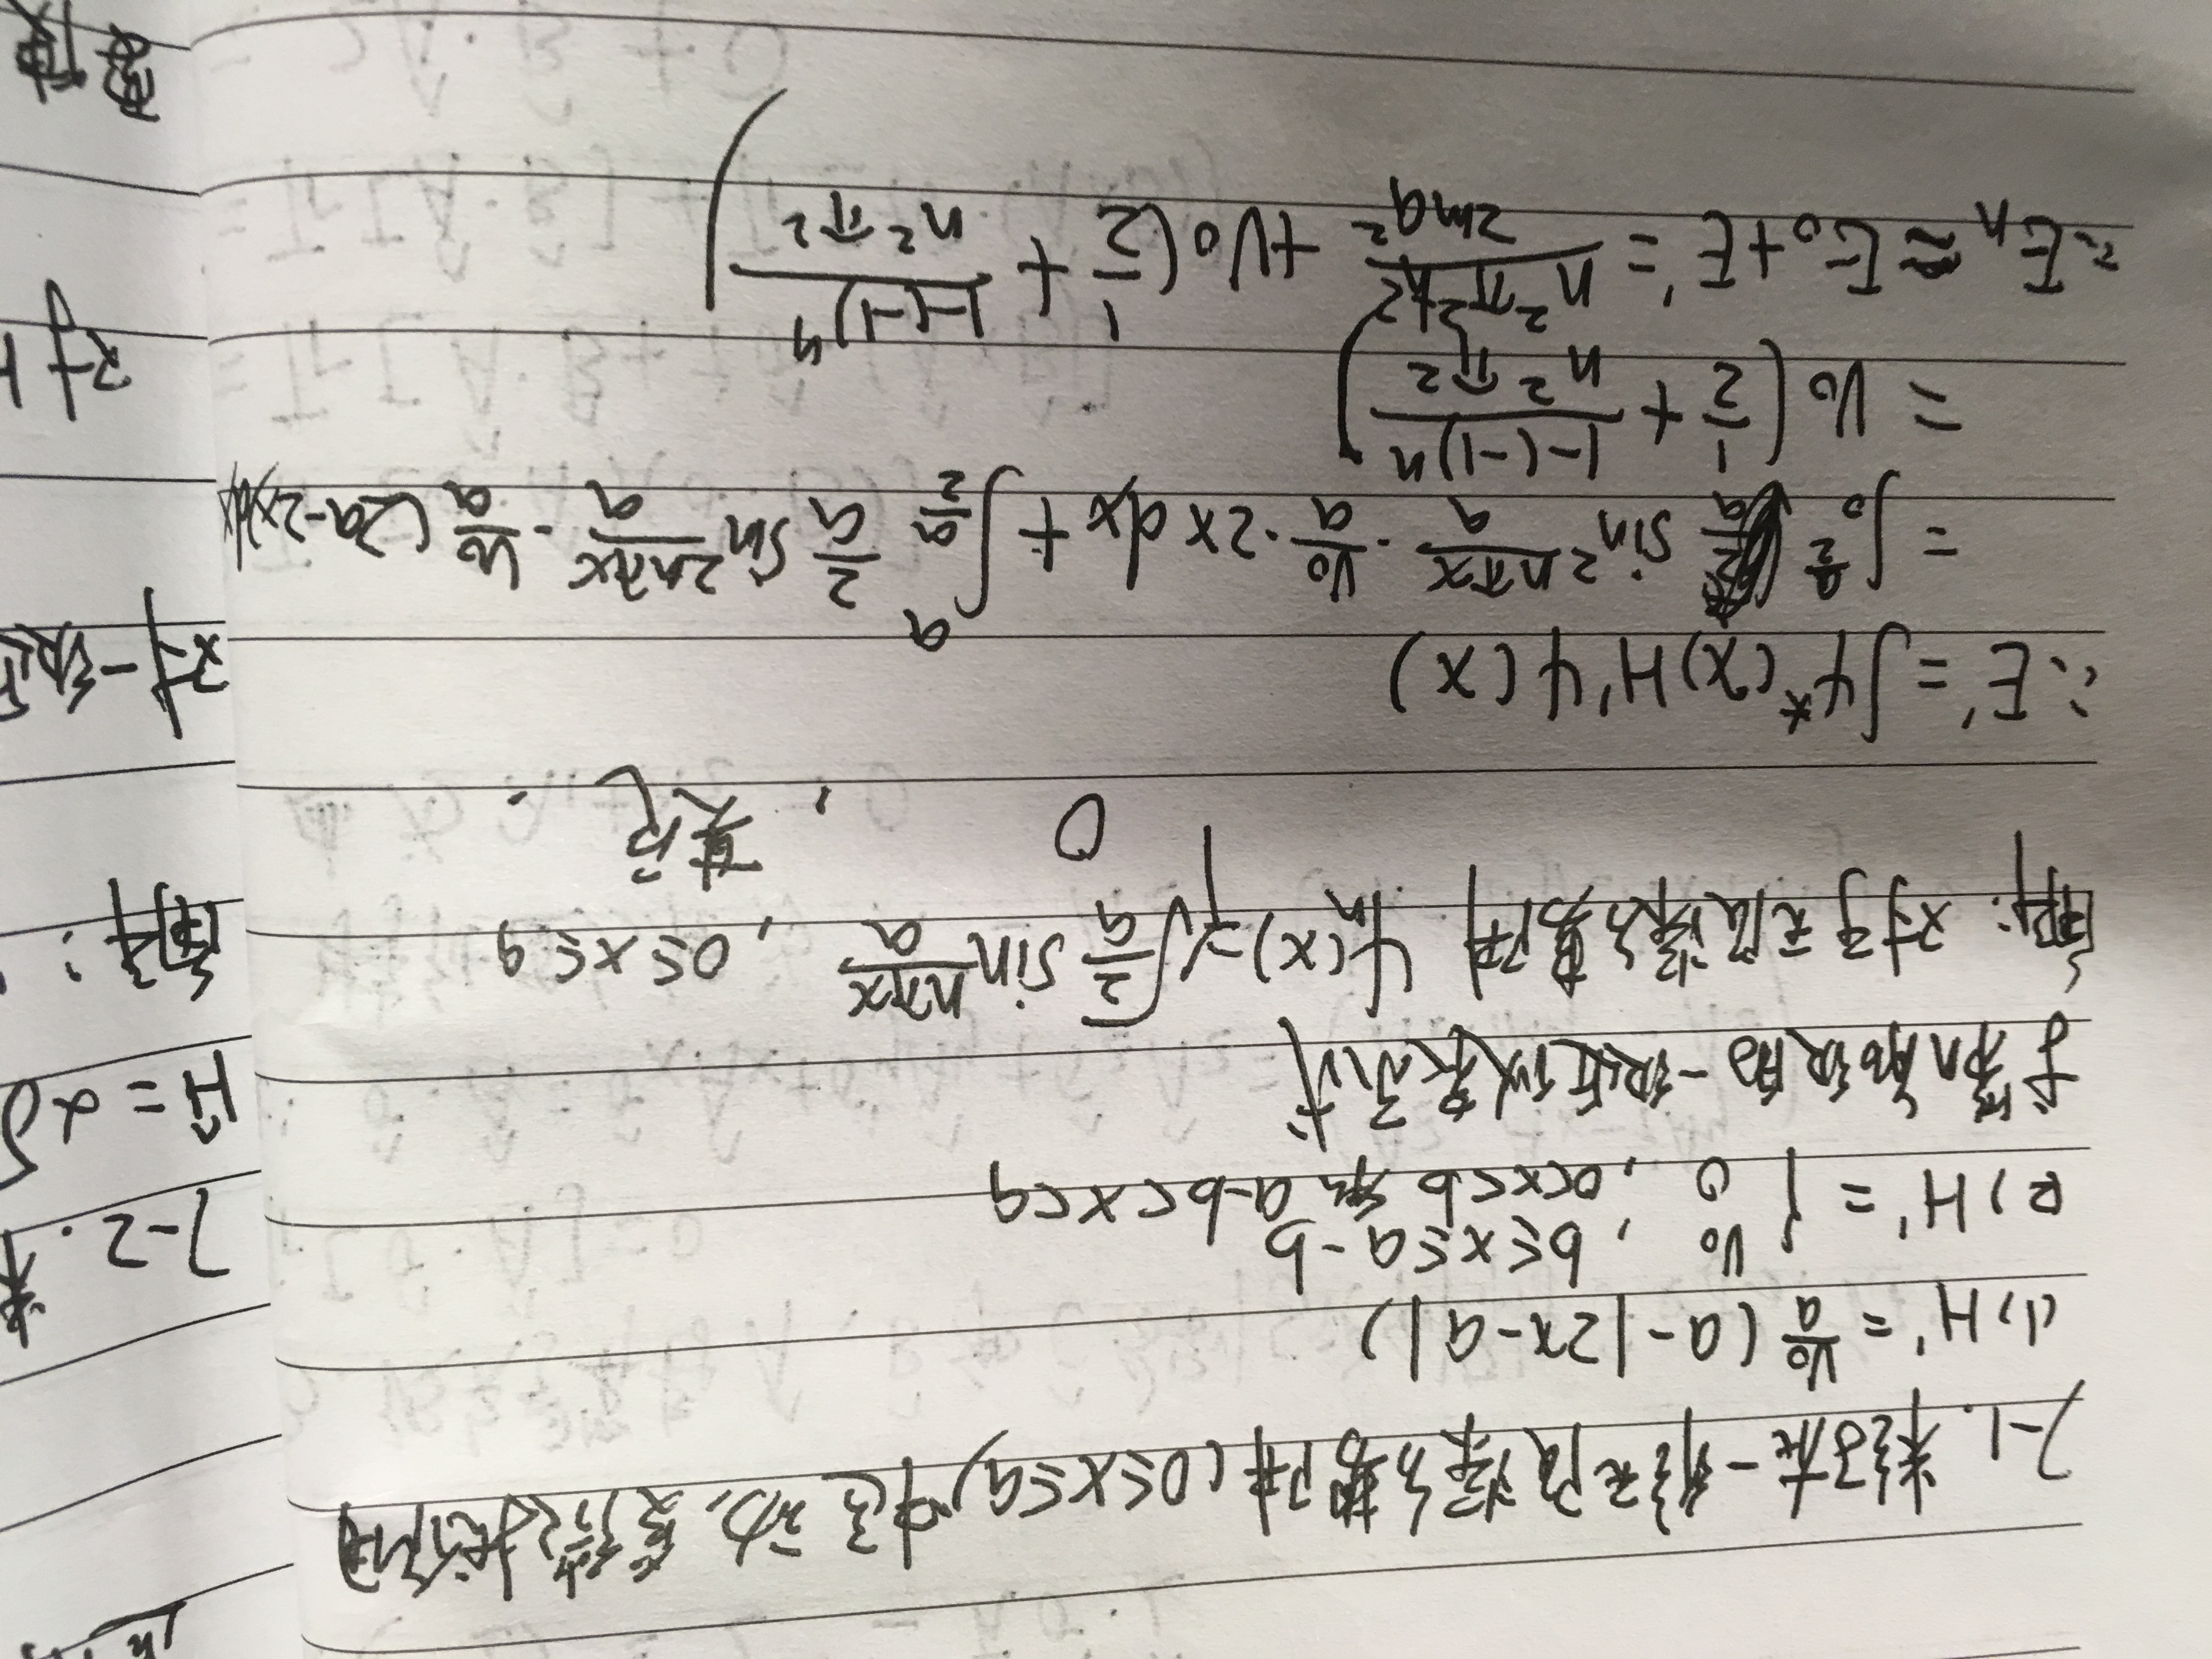 7-1. 粒子在一维无限深方势阱(0≤x≤a)中运动,受微扰作用
(1) H' = V₀/a (a-|2x-a|)
(2) H' = { V₀ , b≤x≤a-b
0 , 0<x≤b 和 a-b<x<a
求第n能级的一级近似表示式
解: 对于无限深方势阱 ψₙ(x)={ √(2/a) sin nπx/a , 0≤x≤a
0 , 其它.
∴ E' = ∫ψ*(x)H'ψ(x)
= ∫₀^(a/2) 2/a sin² nπx/a · V₀/a · 2x dx + ∫_(a/2)^a 2/a sin² nπx/a · V₀/a (2a-2x)dx
= V₀(1/2 + (1-(-1)ⁿ)/(n²π²))
∴ Eₙ ≈ E₀+E' = n²π²ħ²/(2ma²) + V₀(1/2 + (1-(-1)ⁿ)/(n²π²))
7-2. 粒
Ĥ = αδ
解:
对一级近
对H
要使